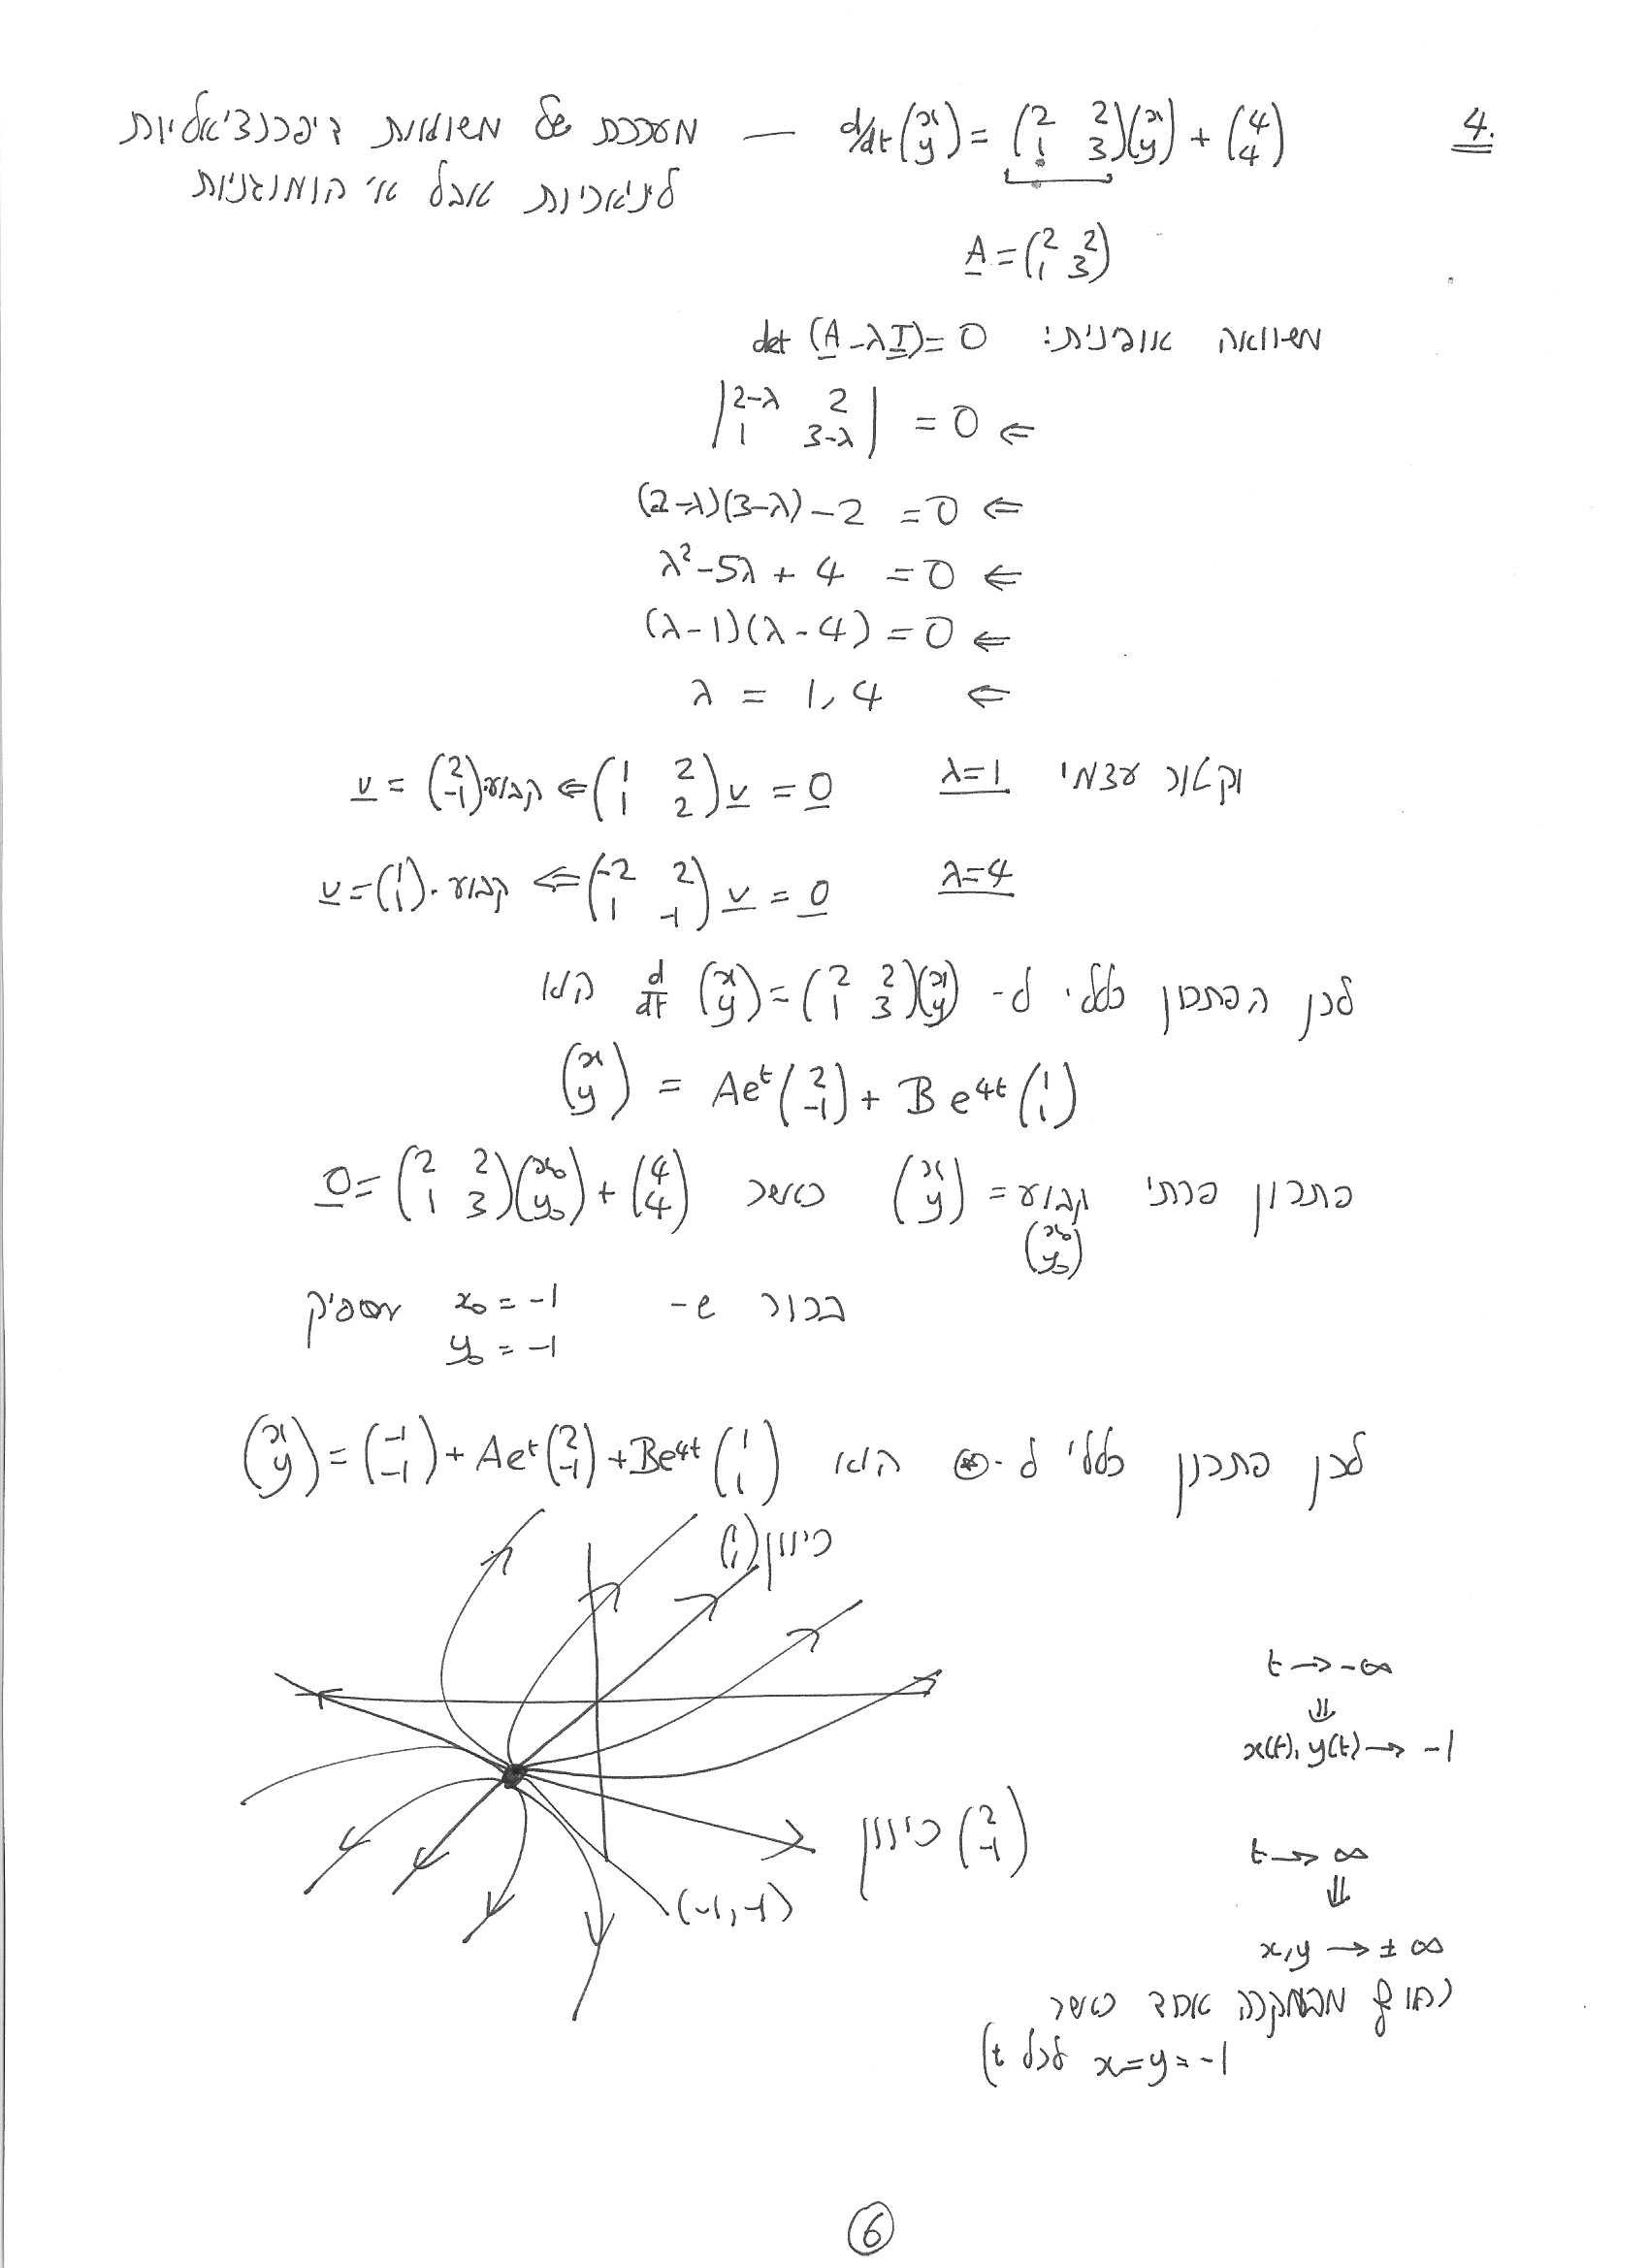 4. d/dt (x y) = (2 2 1 3)(x y) + (4 4) — מערכת של משוואות דיפרנציאליות
לינאריות אבל אי הומוגניות
A = (2 2 1 3)
משוואה אופנית: det (A - λI) = 0
⇐ |2-λ 2 1 3-λ| = 0
⇐ (2-λ)(3-λ) - 2 = 0
⇐ λ² - 5λ + 4 = 0
⇐ (λ-1)(λ-4) = 0
⇐ λ = 1, 4
וקטור עצמי λ=1 (1 2 1 2) v = 0 ⇐ v = (2 -1) · קבוע
λ=4 (-2 2 1 -1) v = 0 ⇐ v = (1 1) · קבוע
לכן הפתרון כללי ל- d/dt (x y) = (2 2 1 3)(x y) הוא
(x y) = Ae^t (2 -1) + Be^4t (1 1)
פתרון פרטי (x y) = קבוע (x₀ y₀) כאשר 0 = (2 2 1 3)(x₀ y₀) + (4 4)
ברור ש- x₀ = -1 y₀ = -1 מספיק
לכן פתרון כללי ל-⊛ הוא (x y) = (-1 -1) + Ae^t (2 -1) + Be^4t (1 1)
כיוון (1 1)
t → -∞
⇓
x(t), y(t) → -1
כיוון (2 -1)
(-1, -1)
t → ∞
⇓
x, y → ± ∞
(חוץ מבמקרה אחד כאשר
x = y = -1 לכל t)
6